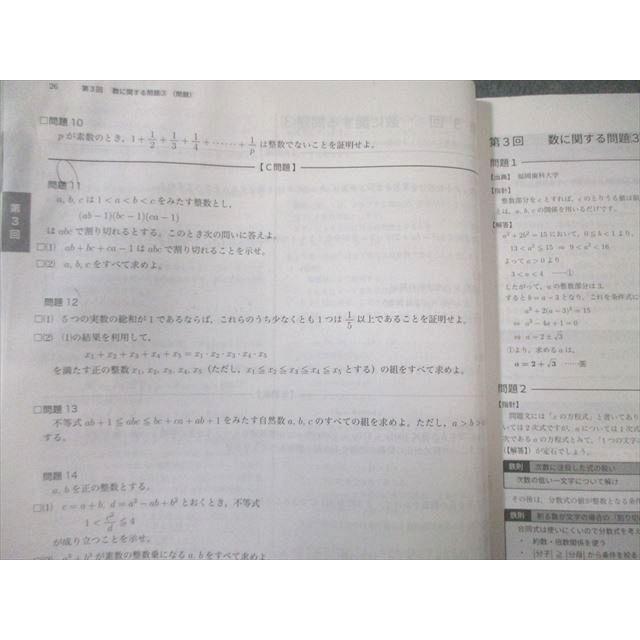 26 第3回 数に関する問題③ (問題)
□問題10
pが素数のとき, 1+1/2+1/3+1/4+……+1/p は整数でないことを証明せよ。
【C問題】
問題11
a, b, cは1<a<b<cをみたす整数とし,
(ab−1)(bc−1)(ca−1)
はabcで割り切れるとする。このとき次の問いに答えよ。
□(1) ab+bc+ca−1はabcで割り切れることを示せ。
□(2) a, b, cをすべて求めよ。
問題12
□(1) 5つの実数の総和が1であるならば, これらのうち少なくとも1つは1/5以上であることを証明せよ。
□(2) (1)の結果を利用して,
x₁+x₂+x₃+x₄+x₅=x₁·x₂·x₃·x₄·x₅
を満たす正の整数x₁, x₂, x₃, x₄, x₅ (ただし, x₁≦x₂≦x₃≦x₄≦x₅とする) の組をすべて求めよ。
□問題13
不等式ab+1≦abc≦bc+ca+ab+1をみたす自然数a, b, cのすべての組を求めよ。ただし, a>b>
する。
問題14
a, bを正の整数とする。
□(1) c=a+b, d=a²−ab+b²とおくとき, 不等式
1<c²/d≦4
が成り立つことを示せ。
a²+b²が素数の整数乗になるa, bをすべて求めよ。
第3回
第3回 数に関する問題③
問題1
【出典】 福岡歯科大学
【指針】
整数部分をcとすれば, cのとりうる値は限
とは, a, b, cの関係を用いるだけです。
【解答】
a²+2b²=15において, 0≦b<1より,
13<a²≦15 ⇒ 9<a²<16
よってa>0より
3<a<4 ……①
したがって, aの整数部分は3,
するとb=a−3となり, これを条件式に
a²+2(a−3)²=15
⇔ a²−4a+1=0
⇔ a=2±√3
①より, 求めるaは,
a=2+√3 ……答
問題2
【指針】
問題文には「xの方程式」と書いてあり
いては2次式ですが, aについては1次式
次であるaの方程式とみて, 「1つの文字に
(【解答】) が定石でしょう。
鉄則 次数に注目した式の扱い
次数の低い一文字について解け
その後は, 分数式の値が整数となる条件
鉄則 割る数が文字の場合の「割り切
合同式は使いにくいので分数式を考え
・ 約数・倍数関係を使う
・ |分子|≧|分母|から条件を絞る